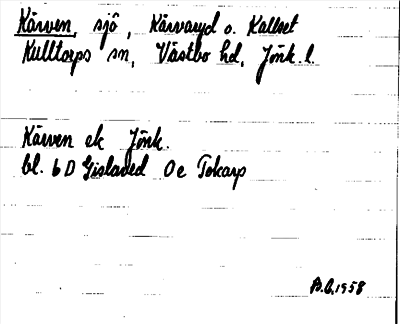 Kärven, sjö, Kärvaryd o. Kallset
Kulltorps sn, Västbo hd, Jönk. l.
Kärven ek Jönk.
bl. 6D Gislaved 0e Tokarp
B.E.1958